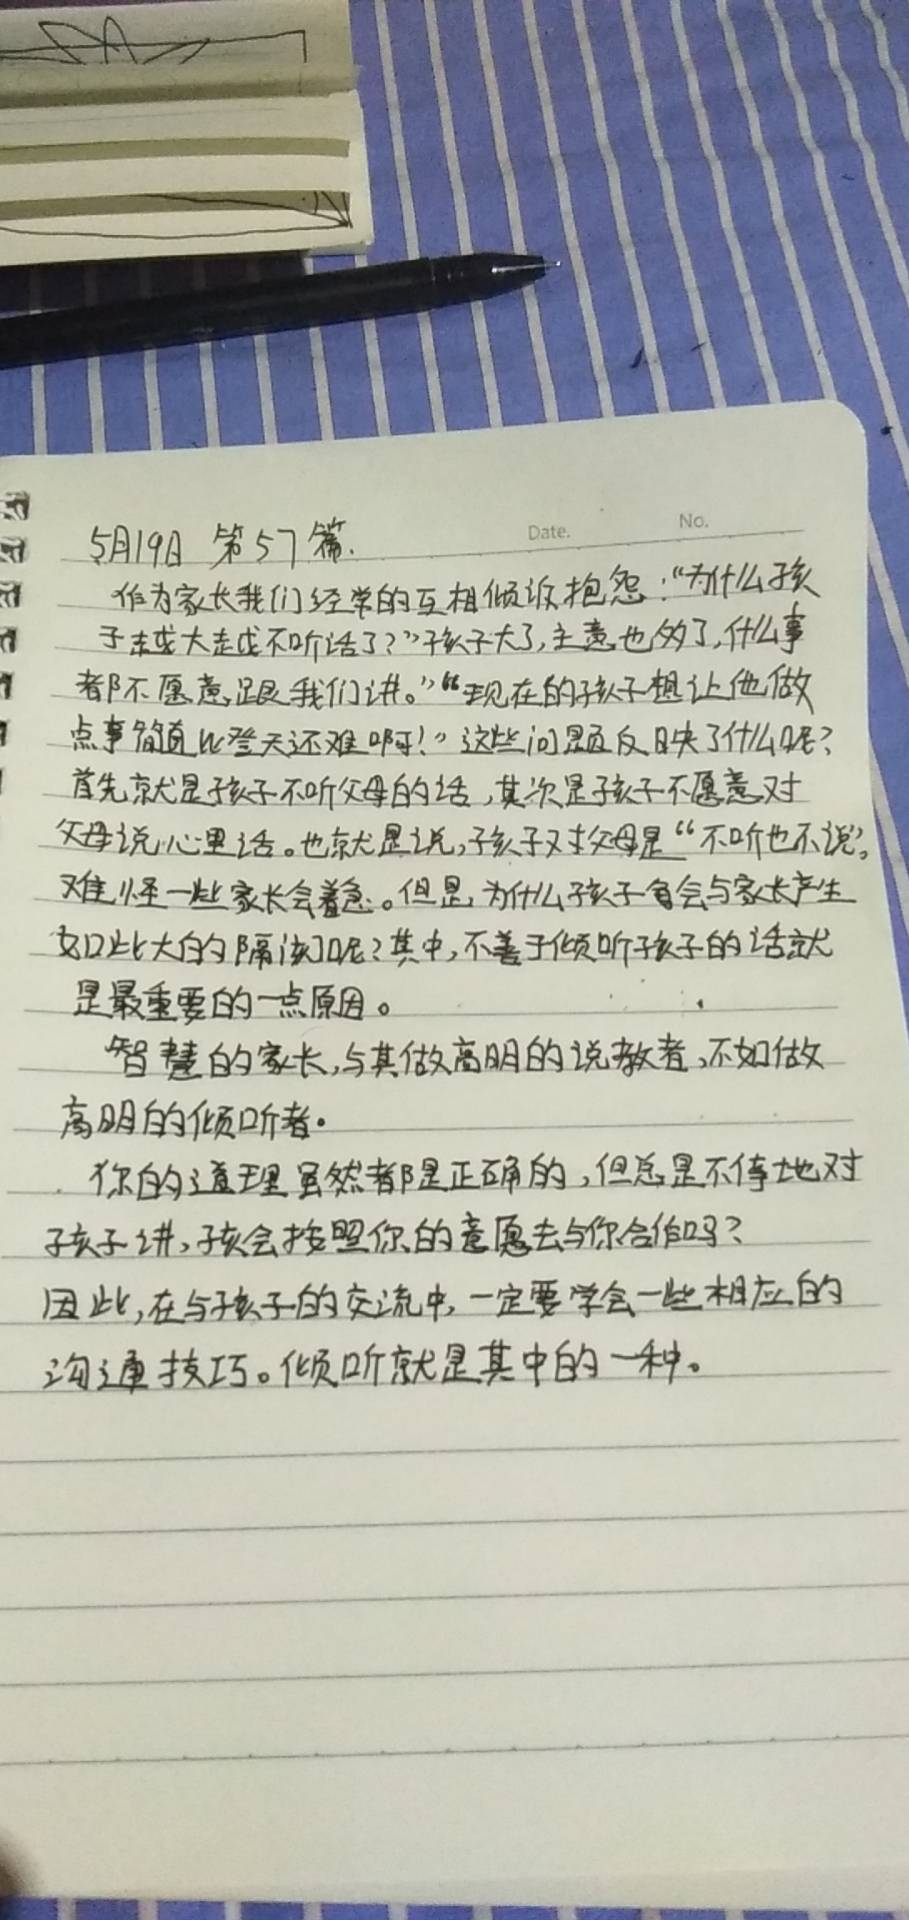 Date.
No.
5月19日 第57篇.
作为家长我们经常的互相倾诉抱怨:“为什么孩
子越大越不听话了?”孩子大了,主意也多了,什么事
都不愿意跟我们讲。”“现在的孩子想让他做
点事简直比登天还难啊!”这些问题反映了什么呢?
首先就是孩子不听父母的话,其次是孩子不愿意对
父母说心里话。也就是说,孩子对父母是“不听也不说”,
难怪一些家长会着急。但是,为什么孩子会与家长产生
如此大的隔阂呢?其中,不善于倾听孩子的话就
是最重要的一点原因。
智慧的家长,与其做高明的说教者,不如做
高明的倾听者。
你的道理虽然都是正确的,但总是不停地对
孩子讲,孩会按照你的意愿去与你合作吗?
因此,在与孩子的交流中,一定要学会一些相应的
沟通技巧。倾听就是其中的一种。